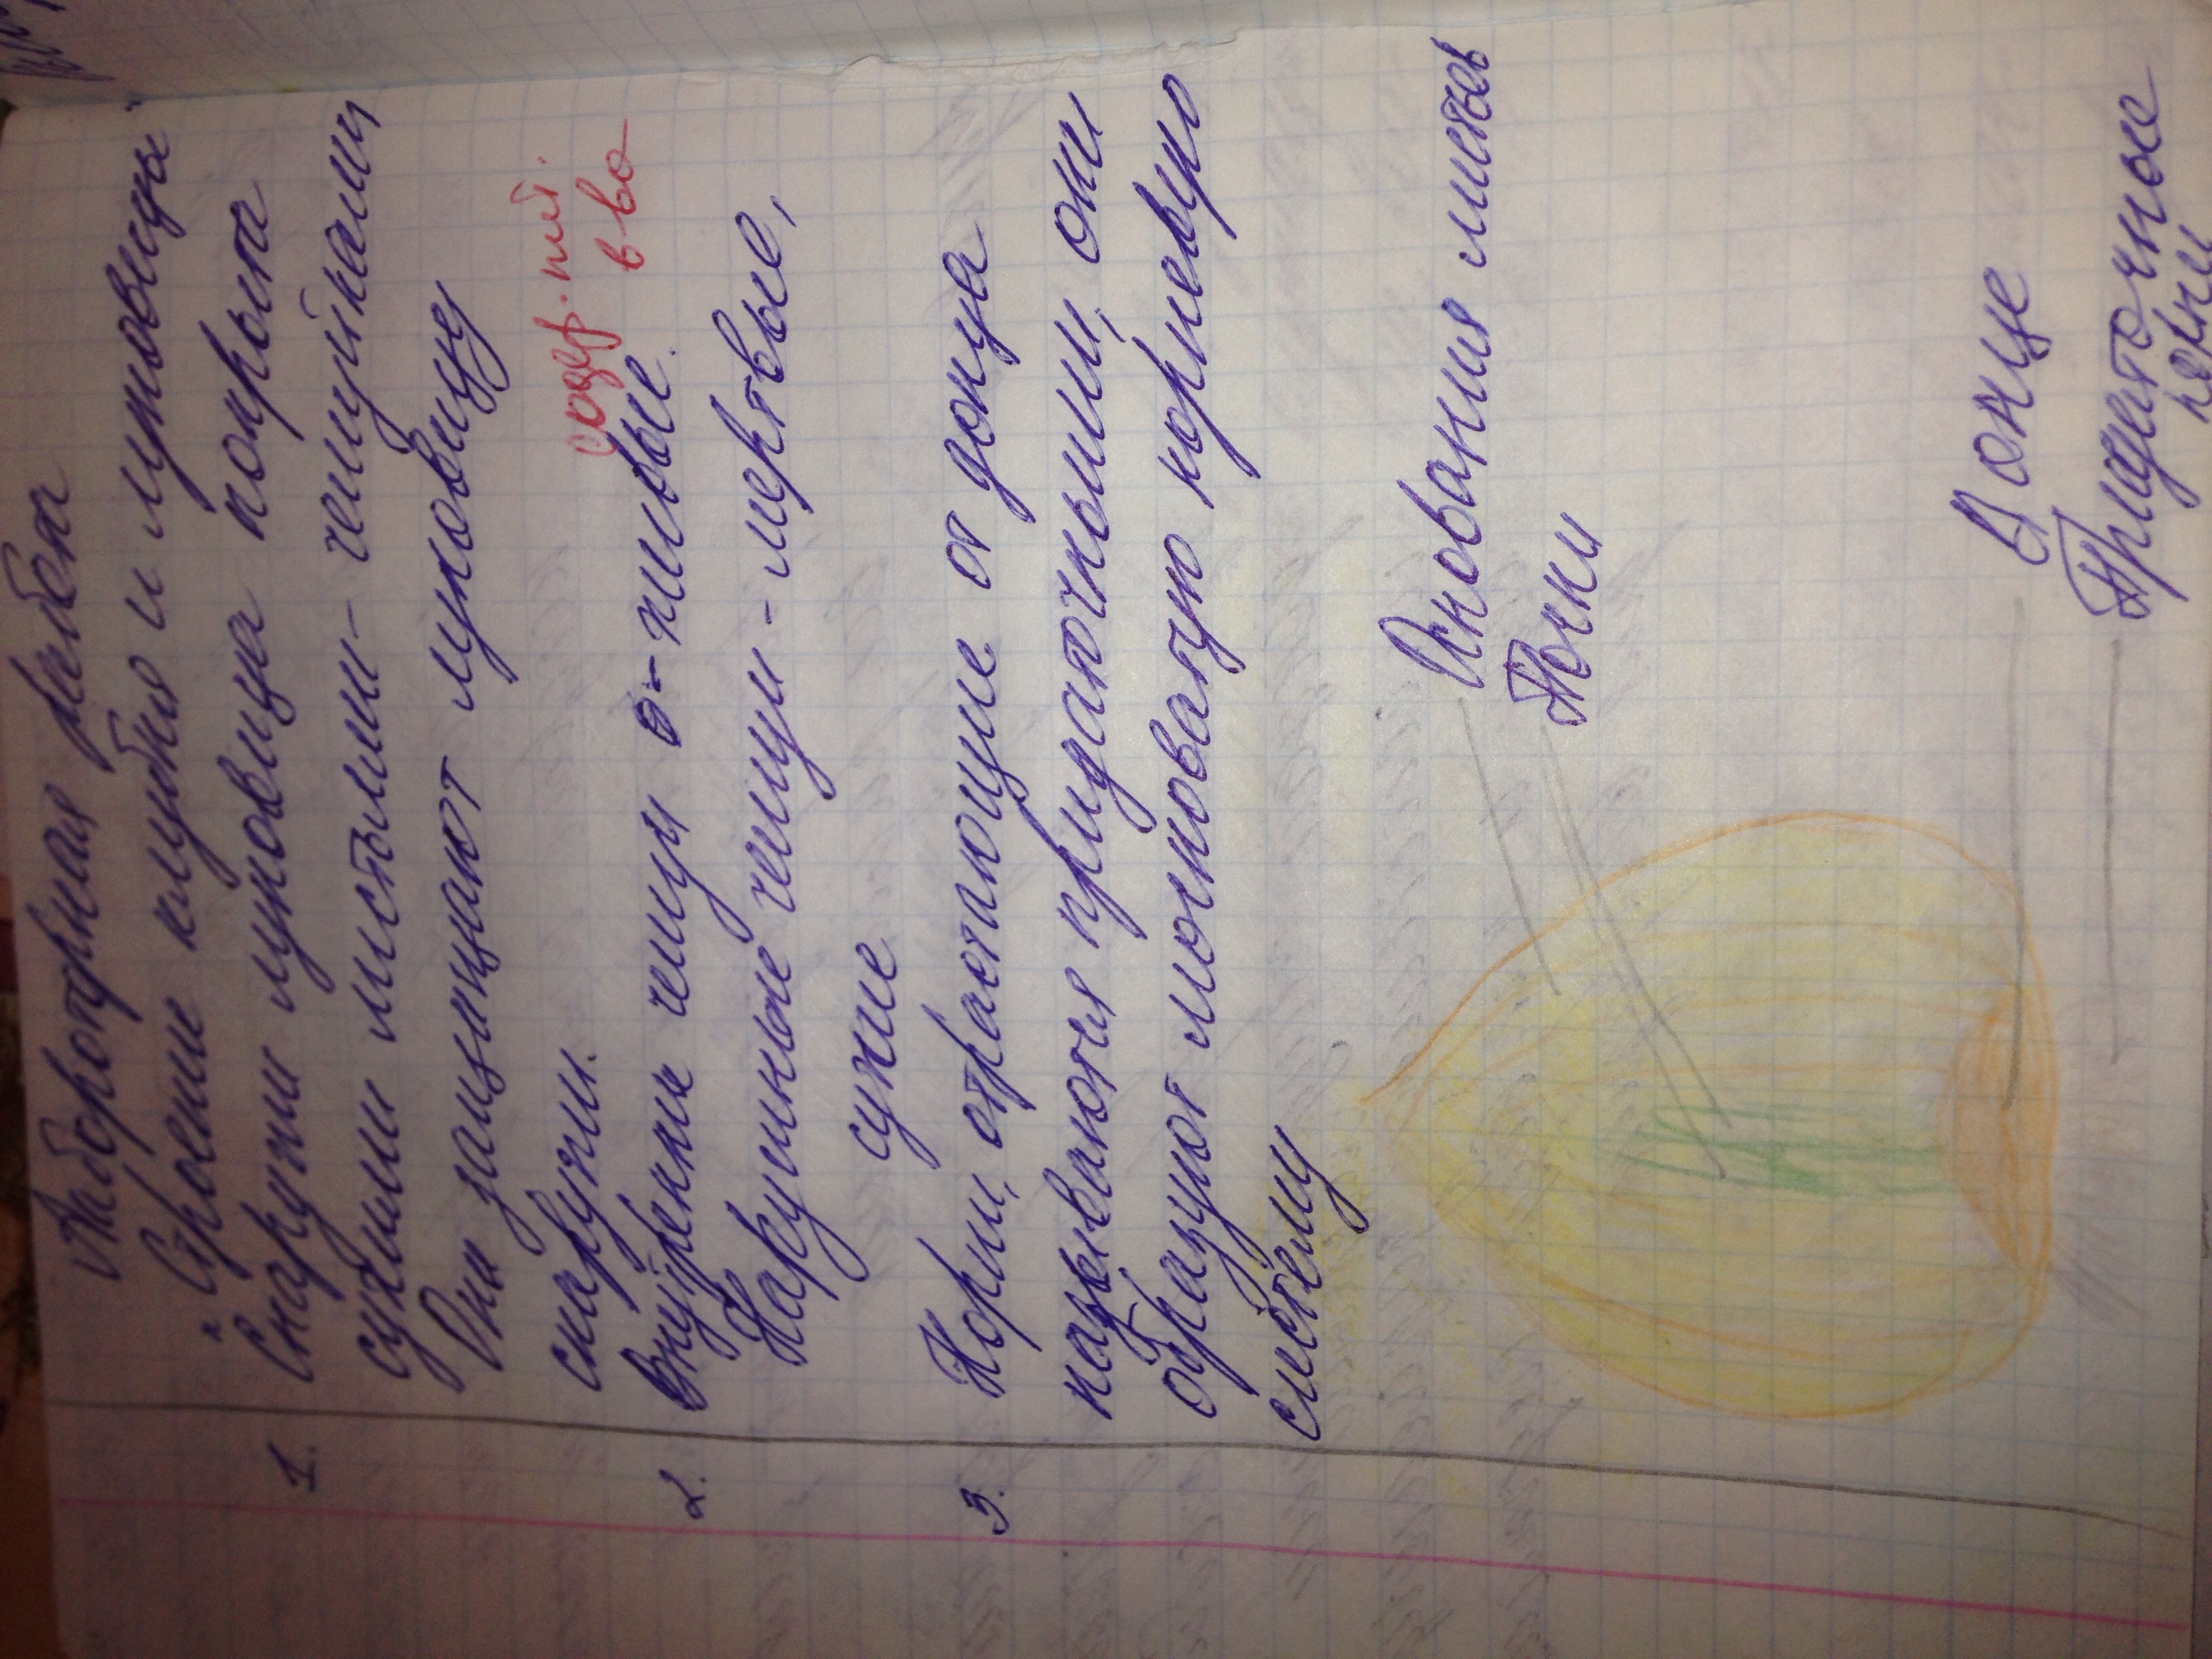 Лабораторная работа
"Строение клубня и луковицы"
1. Снаружи луковица покрыта
сухими листьями - чешуйками
Они защищают луковицу
снаружи.
содер. пит.
в во
2. Внутрение чешуи - живые.
Наружные чешуи - мертвые,
сухие
3. Корни, отрастающие от донца
называются придаточными, они
образуют мочковатую корневую
систему
Основания листьев
Почки
Донце
Придаточные
почки